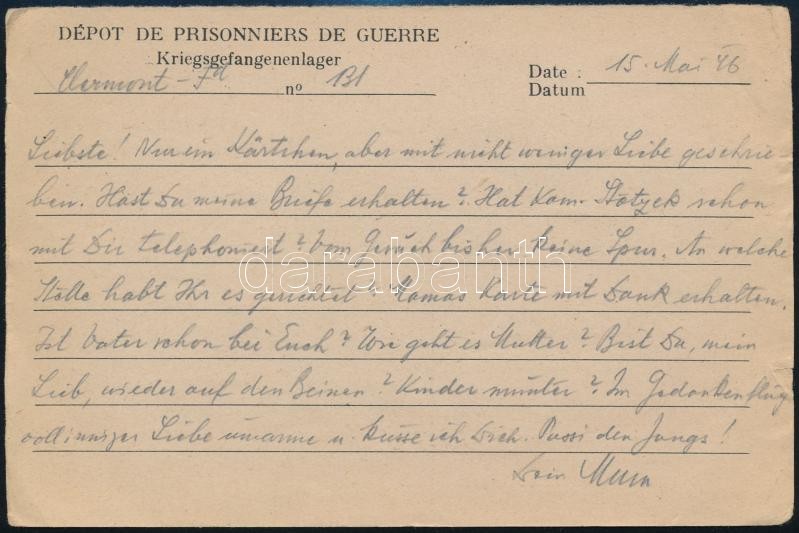 DÉPOT DE PRISONNIERS DE GUERRE
Kriegsgefangenenlager
Clermont-Fd nº 131 Date : 15. Mai 46
Datum
Liebste! Nur ein Kärtchen, aber mit nicht weniger Liebe geschrie-
ben. Hast Du meine Briefe erhalten? Hat Kam. schon
mit Dir telephoniert? Vom Gesuch bisher keine Spur. An welche
Stelle habt Ihr es gerichtet? Mamas Karte mit Dank erhalten.
Ist Vater schon bei Euch? Wie geht es Mutter? Bist Du, mein
Lieb, wieder auf den Beinen? Kinder munter? Im Gedankenflug
voll inniger Liebe umarme u. küsse ich Dich. Pussi den Jungs!
Dein
darabanth